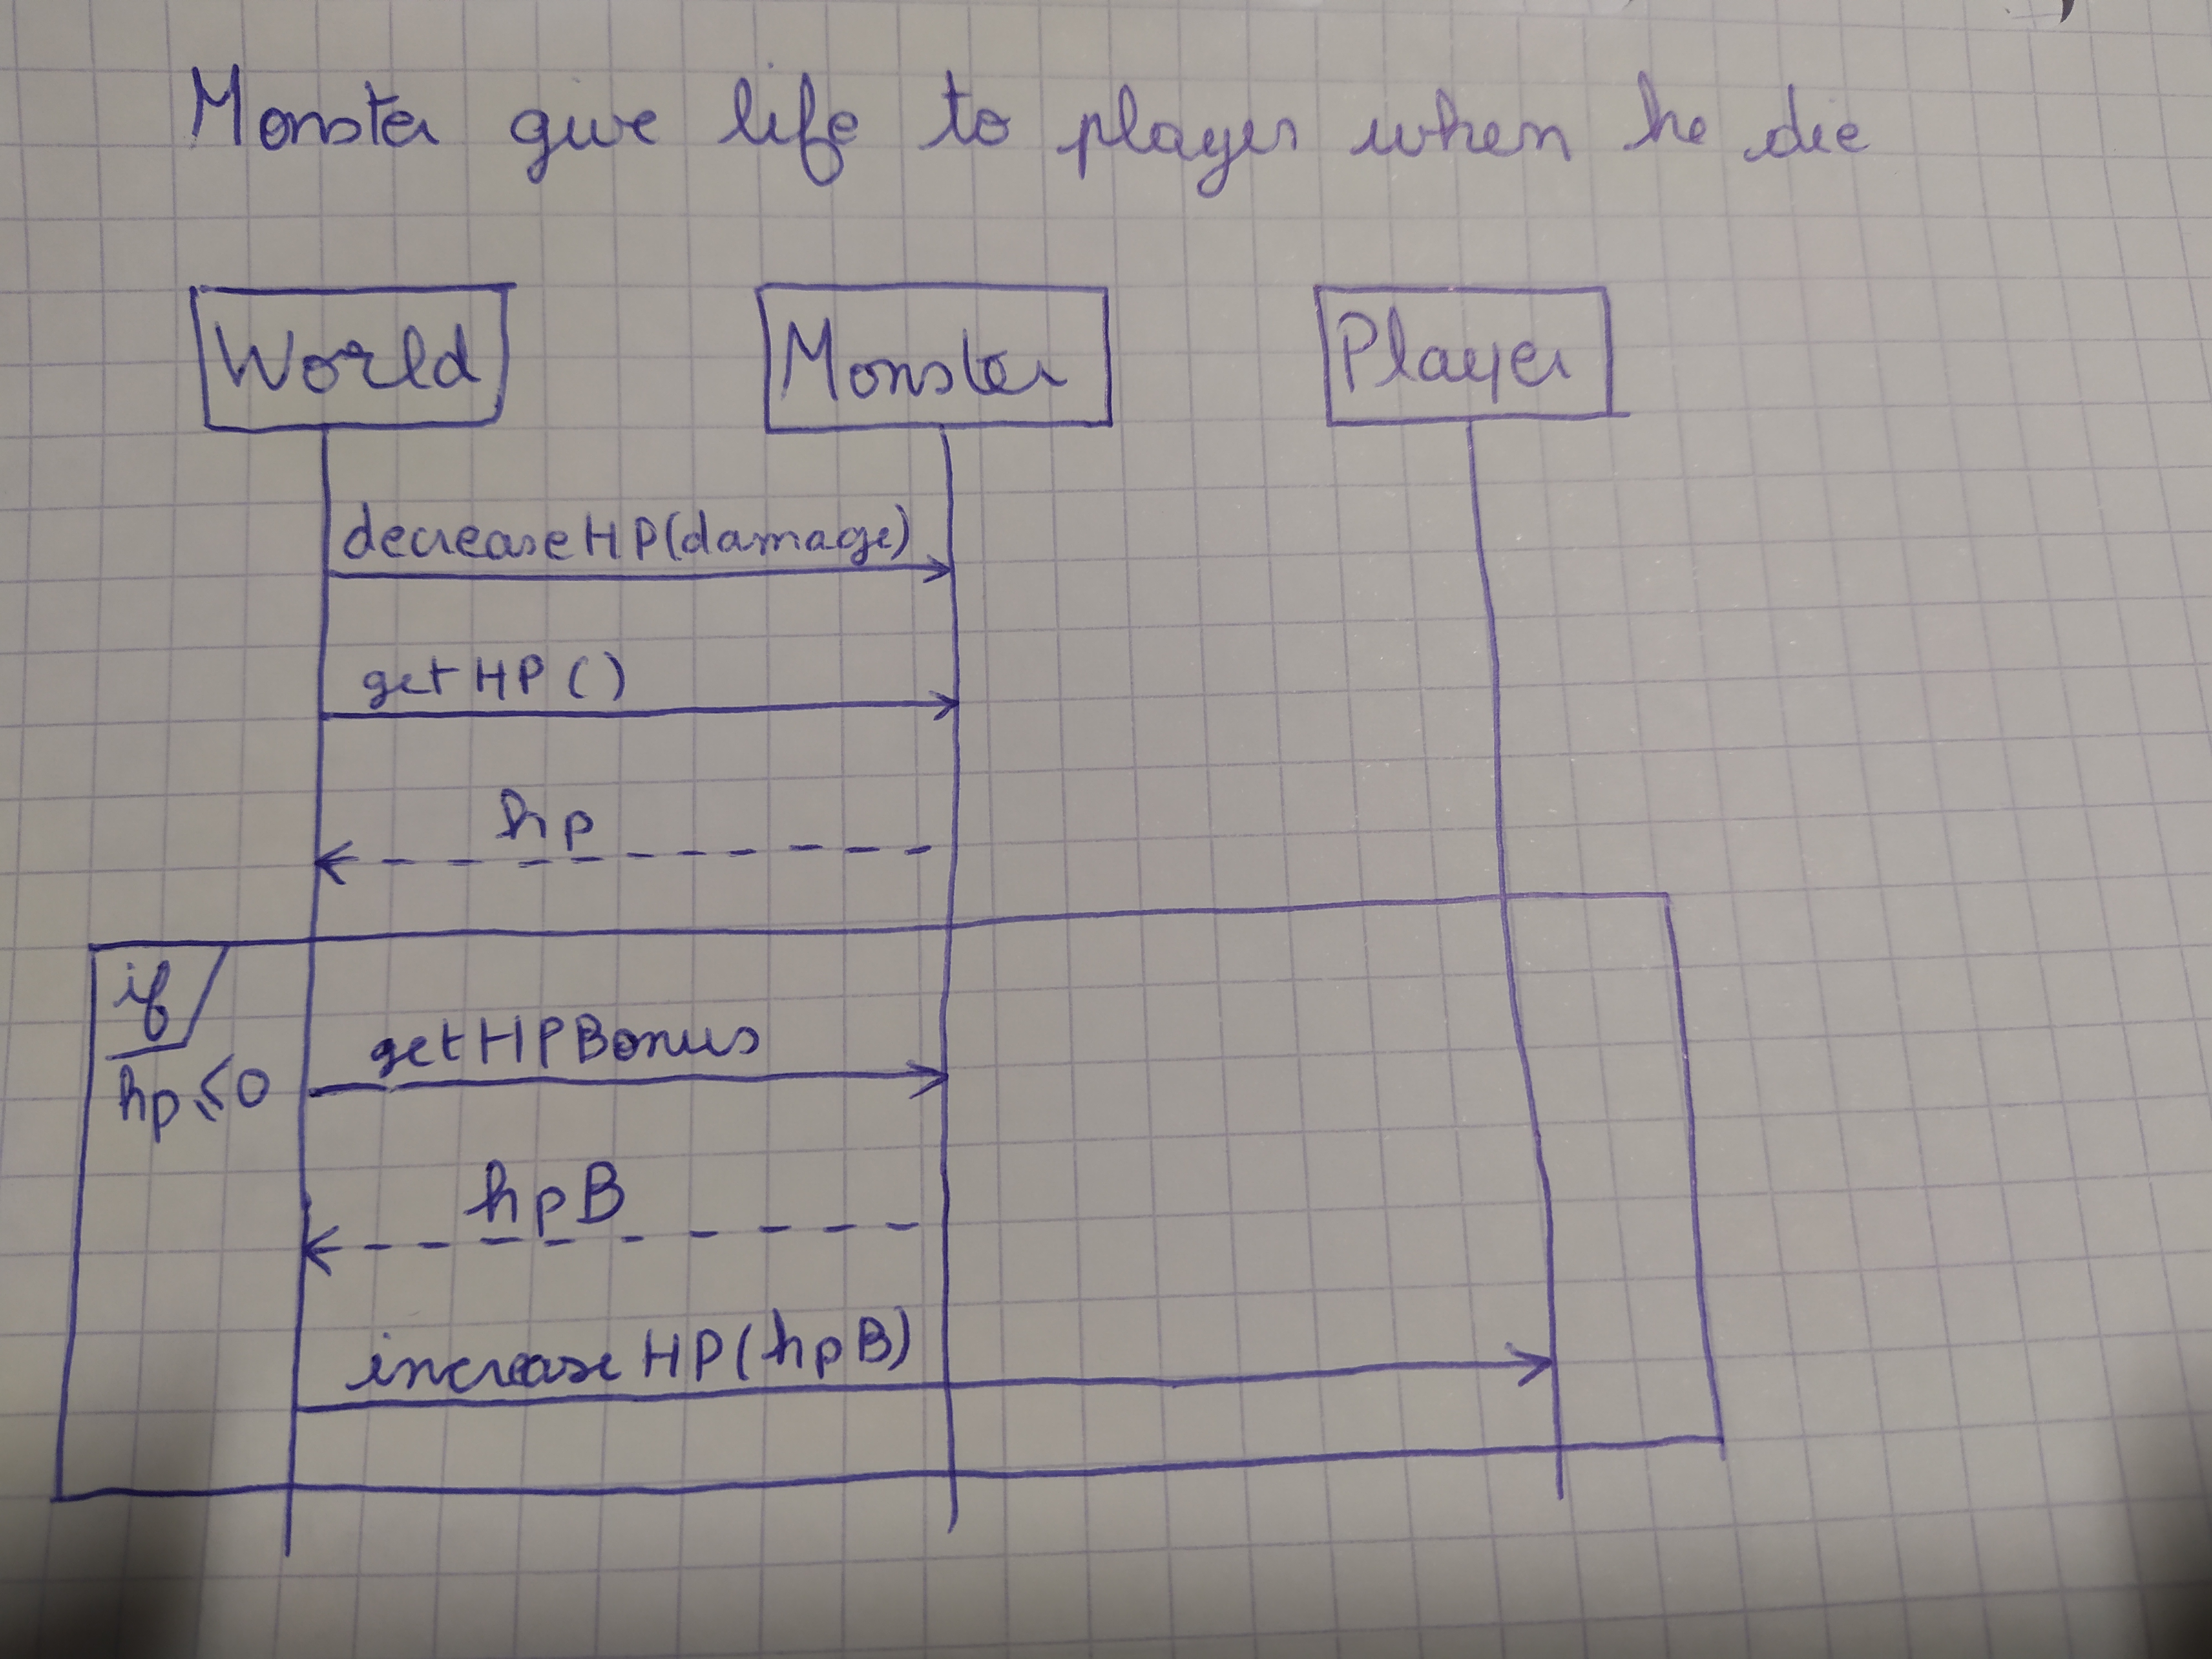 Monster give life to player when he die
World
Monster
Player
decreaseHP(damage)
getHP()
hp
if
hp ≤ 0
getHPBonus
hpB
increaseHP(hpB)